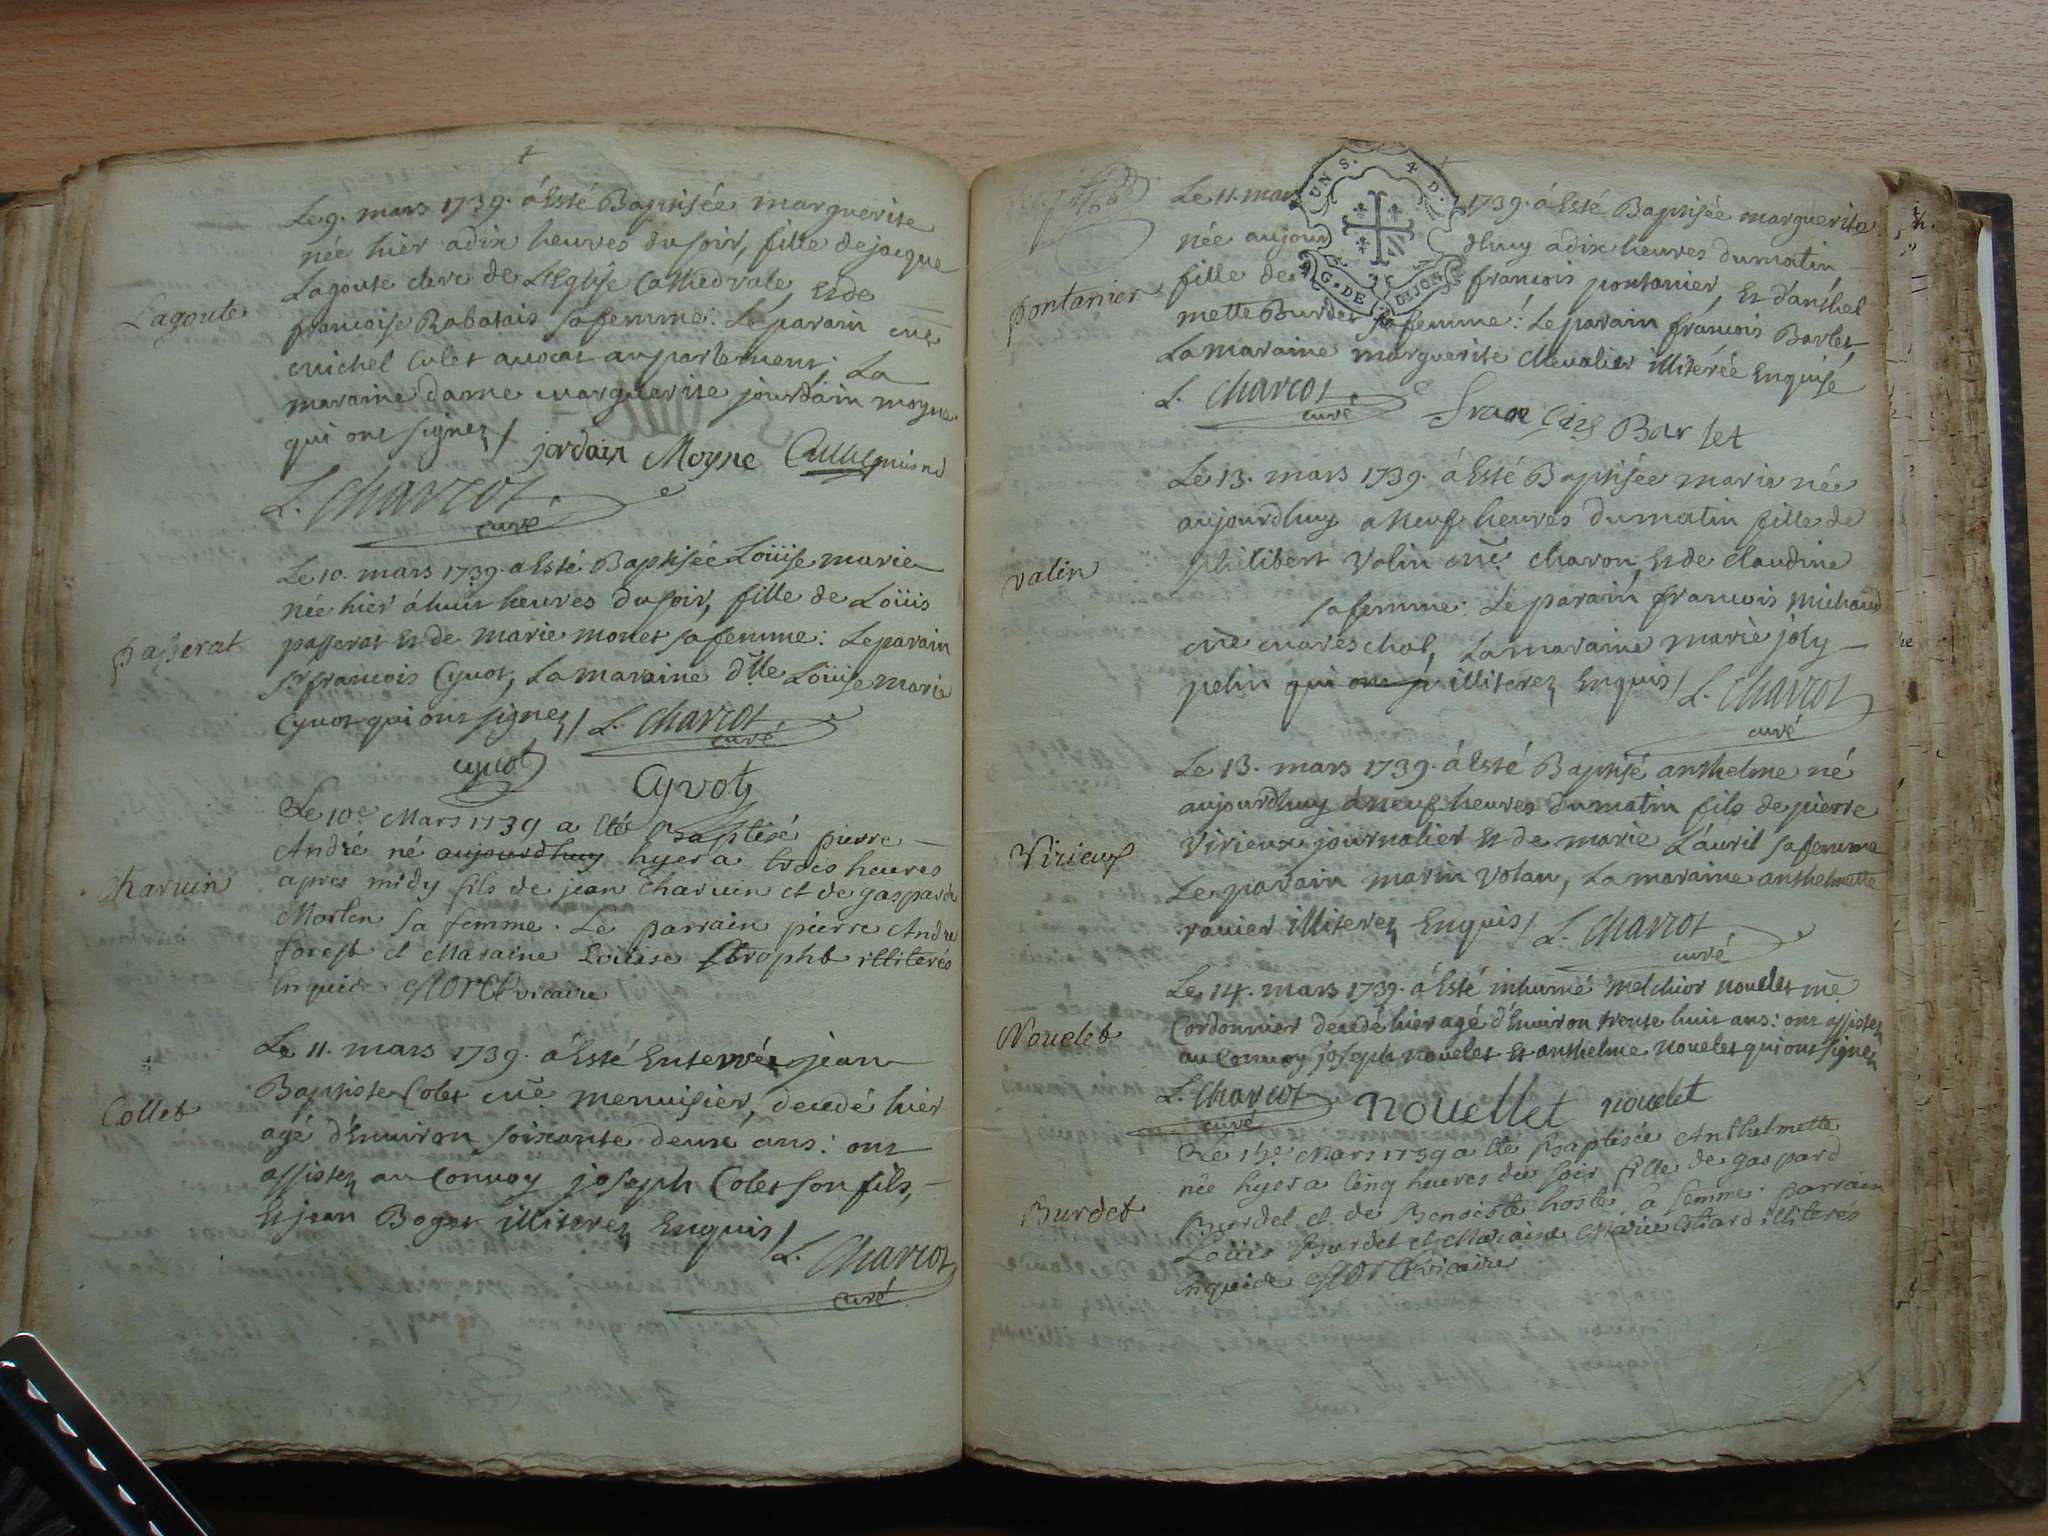 Lagoute
Le 9. mars 1739. à Esté Baptisée marguerite
née hier a dix heures du soir, fille de jacque
Lagoute clerc de L'Eglise Cathedrale, et de
francoise Rabatais sa femme: Le parain me
michel Culet avocat au parlement; La
maraine dame marguerite jourdain moyne
qui ont signez /
jordain Moyne
L. Charcot
curé
Passerat
Le 10. mars 1739. a Esté Baptisée Loüise marie
née hier à huit heures du soir, fille de Loüis
passerat et de marie monet sa femme: Le parain
sr francois Cyvot, La maraine dlle Loüise marie
Cyvot qui ont signez / L. Charcot
curé
cyvot
Cyvot
Charvin
Le 10e Mars 1739 a été Baptisé pierre
André né aujourdhuy hyer a trois heures
apres midy fils de jean charvin et de gasparde
Morten sa femme. Le parrain pierre André
forest et Maraine Loüise illiterés
Enquis vicaire
Collet
Le 11. mars 1739. à Esté Enterrée jean
Baptiste Colet me menuisier, decedé hier
agé d'Environ soixante deux ans: ont
assistez au Convoy joseph Colet son fils,
Et jean Boget illiterez Enquis /
L. Charcot
curé
UNS. 4 D.
G. DE DIJON
Pontanier
Le 11. mars 1739. à Esté Baptisée marguerite
née aujourdhuy a dix heures du matin
fille de francois pontanier, Et d'anthel
mette Burdet sa femme: Le parain francois Barlet
La maraine marguerite chevalier illiterée Enquise
L. Charcot
curé
Francois Barlet
Valin
Le 13. mars 1739. à Esté Baptisée marie née
aujourdhuy a Neuf heures du matin fille de
philibert Valin me charon, et de claudine
sa femme: Le parain francois michaud
me mareschal, La maraine marie joly
pelin qui ont s illiterez Enquis / L. Charcot
curé
Virieux
Le 13. mars 1739. à Esté Baptisé anthelme né
aujourdhuy à neuf heures du matin fils de pierre
Virieux journalier et de marie L'auril sa femme
Le parain marin Volan, La maraine anthelmette
ravier illiterez Enquis / L. Charcot
curé
Nouelet
Le 14. mars 1739. à Esté inhumé melchior nouelet me
Cordonnier decedé hier agé d'Environ trente huit ans: ont assistez
au Convoy joseph nouelet et anthelme nouelet qui ont signez
L. Charcot
curé
nouellet nouelet
Burdet
Le 15e Mars 1739 a été Baptisée Anthelmette
née hyer a cinq heures du soir fille de gaspard
Burdet et de Benoiste hoste sa femme. parrain
Loüis Burdet et Maraine Marie illiterés
Enquis vicaire